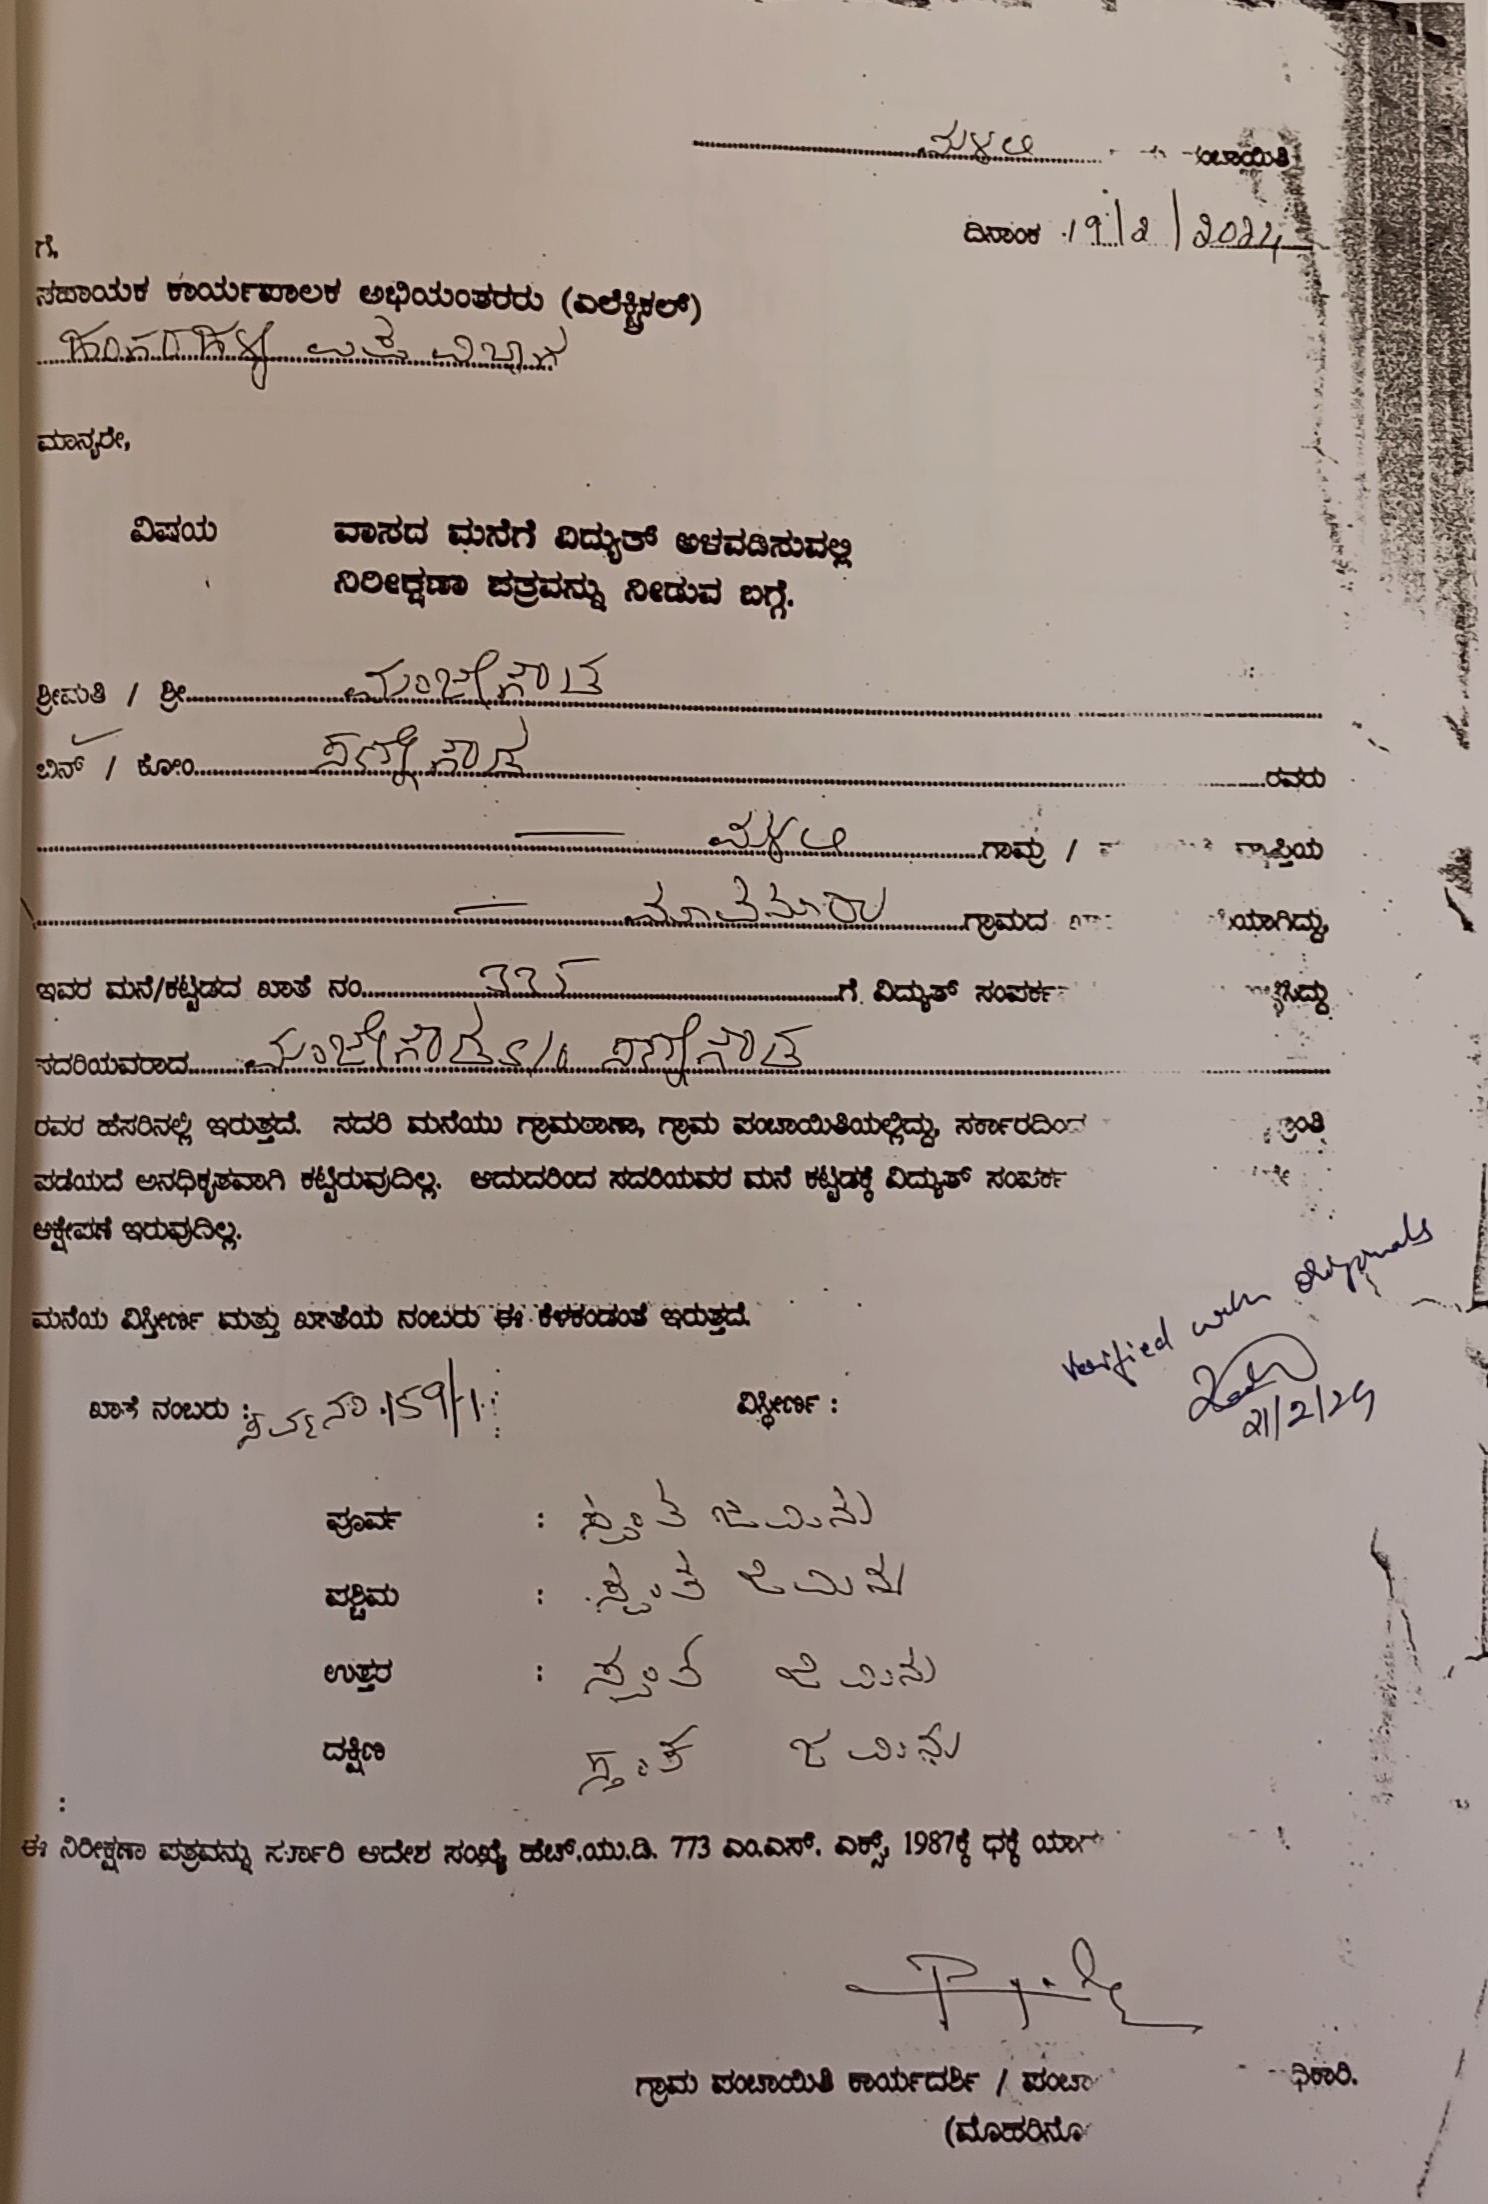 ಮಳಲಿ
ದಿನಾಂಕ 19/2/2024
ಗೆ,
ಸಹಾಯಕ ಕಾರ್ಯಪಾಲಕ ಅಭಿಯಂತರರು (ಎಲೆಕ್ಟ್ರಿಕಲ್)
ಮಾನ್ಯರೇ,
ವಿಷಯ ವಾಸದ ಮನೆಗೆ ವಿದ್ಯುತ್ ಅಳವಡಿಸುವಲ್ಲಿ
ನಿರೀಕ್ಷಣಾ ಪತ್ರವನ್ನು ನೀಡುವ ಬಗ್ಗೆ.
ಶ್ರೀಮತಿ / ಶ್ರೀ ಮಂಜೇಗೌಡ
ಬಿನ್ / ಕೋಂ ಸಣ್ಣೇಗೌಡ ರವರು
ಮಳಲಿ ಗಾಮ್ರ / ವ್ಯಾಪ್ತಿಯ
ಗ್ರಾಮದ
ಇವರ ಮನೆ/ಕಟ್ಟಡದ ಖಾತೆ ನಂ ಗೆ ವಿದ್ಯುತ್ ಸಂಪರ್ಕ
ಸದರಿಯವರಾದ ಮಂಜೇಗೌಡ S/o ಸಣ್ಣೇಗೌಡ
ರವರ ಹೆಸರಿನಲ್ಲಿ ಇರುತ್ತದೆ. ಸದರಿ ಮನೆಯು ಗ್ರಾಮಠಾಣಾ, ಗ್ರಾಮ ಪಂಚಾಯಿತಿಯಲ್ಲಿದ್ದು, ಸರ್ಕಾರದಿಂದ
ಪಡೆಯದೆ ಅನಧಿಕೃತವಾಗಿ ಕಟ್ಟಿರುವುದಿಲ್ಲ. ಆದುದರಿಂದ ಸದರಿಯವರ ಮನೆ ಕಟ್ಟಡಕ್ಕೆ ವಿದ್ಯುತ್ ಸಂಪರ್ಕ
ಆಕ್ಷೇಪಣೆ ಇರುವುದಿಲ್ಲ.
ಮನೆಯ ವಿಸ್ತೀರ್ಣ ಮತ್ತು ಖಾತೆಯ ನಂಬರು ಈ ಕೆಳಕಂಡಂತೆ ಇರುತ್ತದೆ.
verified with originals
21/2/24
ಖಾತೆ ನಂಬರು : ಸರ್ವೆ ನಂ. 159/1 ವಿಸ್ತೀರ್ಣ :
ಪೂರ್ವ : ಸ್ವಂತ ಜಮೀನು
ಪಶ್ಚಿಮ : ಸ್ವಂತ ಜಮೀನು
ಉತ್ತರ : ಸ್ವಂತ ಜಮೀನು
ದಕ್ಷಿಣ ಸ್ವಂತ ಜಮೀನು
ಈ ನಿರೀಕ್ಷಣಾ ಪತ್ರವನ್ನು ಸರ್ಕಾರಿ ಆದೇಶ ಸಂಖ್ಯೆ ಹೆಚ್.ಯು.ಡಿ. 773 ಎಂ.ಎಸ್. ಎಕ್ಸ್, 1987ಕ್ಕೆ ಧಕ್ಕೆ
ಗ್ರಾಮ ಪಂಚಾಯಿತಿ ಕಾರ್ಯದರ್ಶಿ /